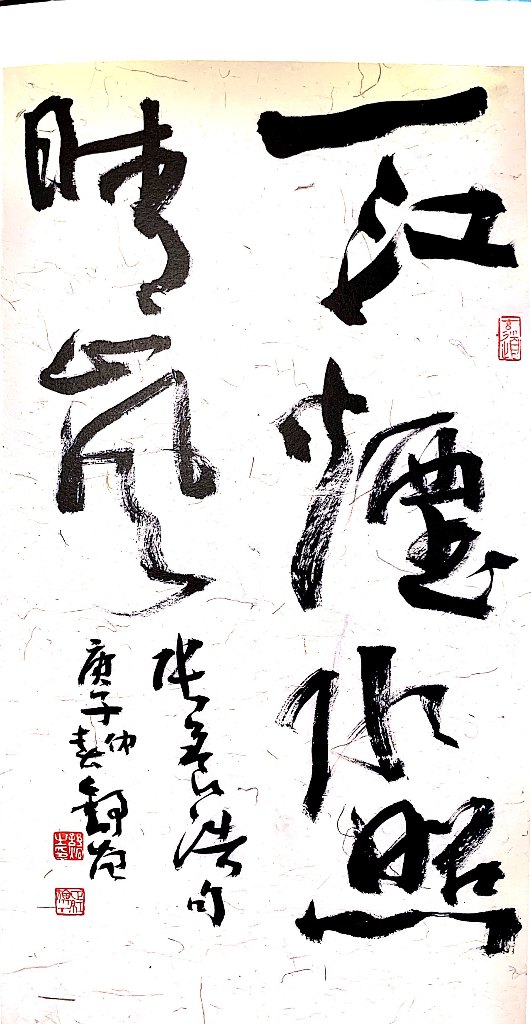 一江煙水照
晴嵐
張養浩句
庚子仲春